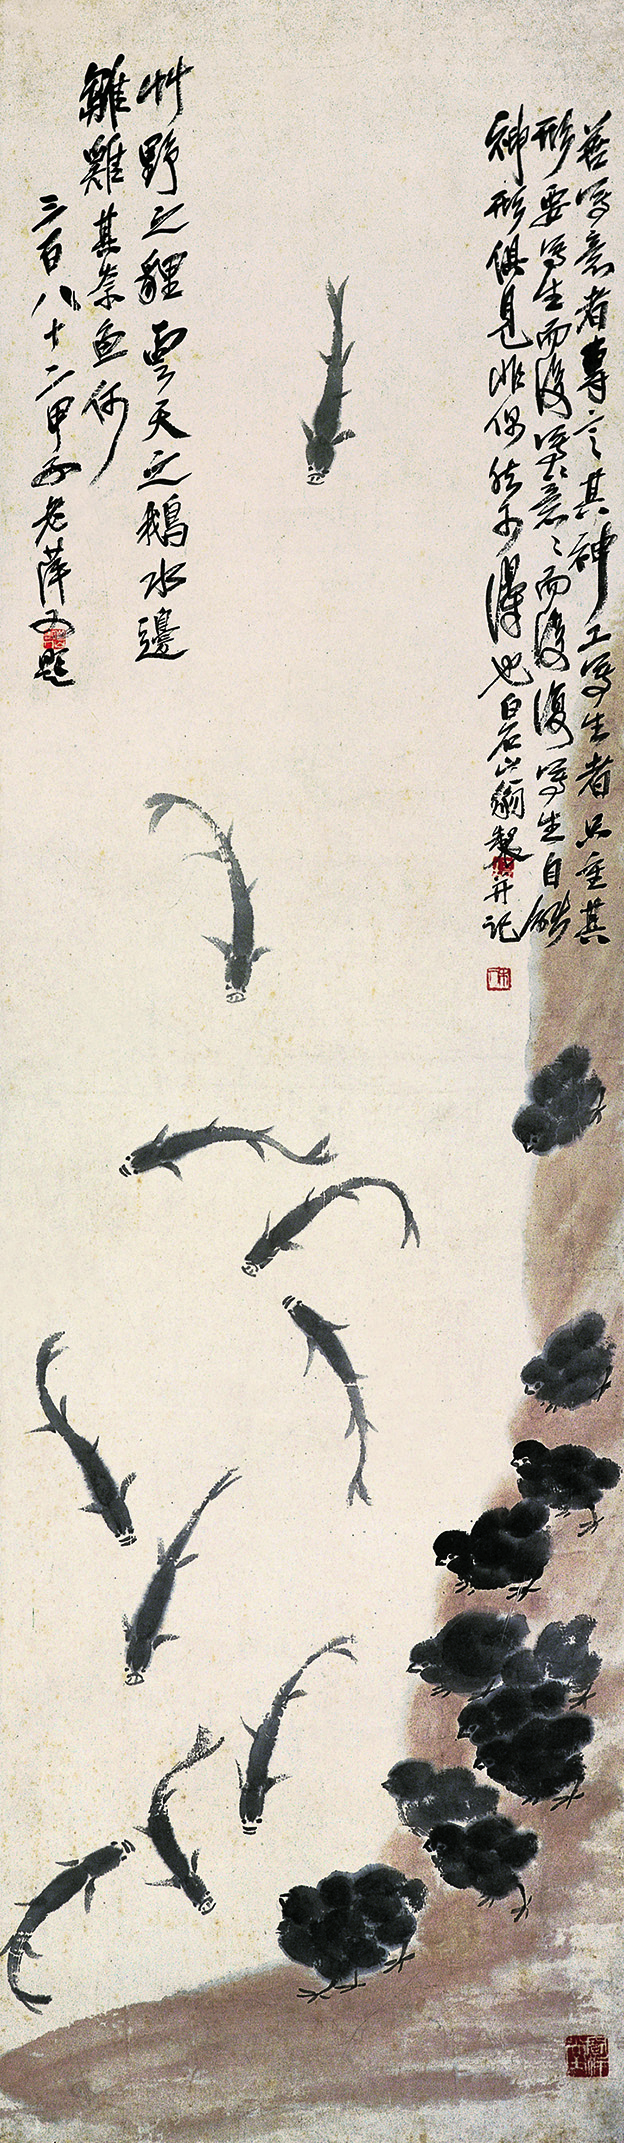 善寫意者專言其神工寫生者只重其
形要寫生而後寫〻意〻而後復寫生自能
神形俱見非偶然可得也白石山翁製并記
艸野之貍雲天之鵝水邊
雛雞其奈魚何
三百八十二甲子老萍又題
木人